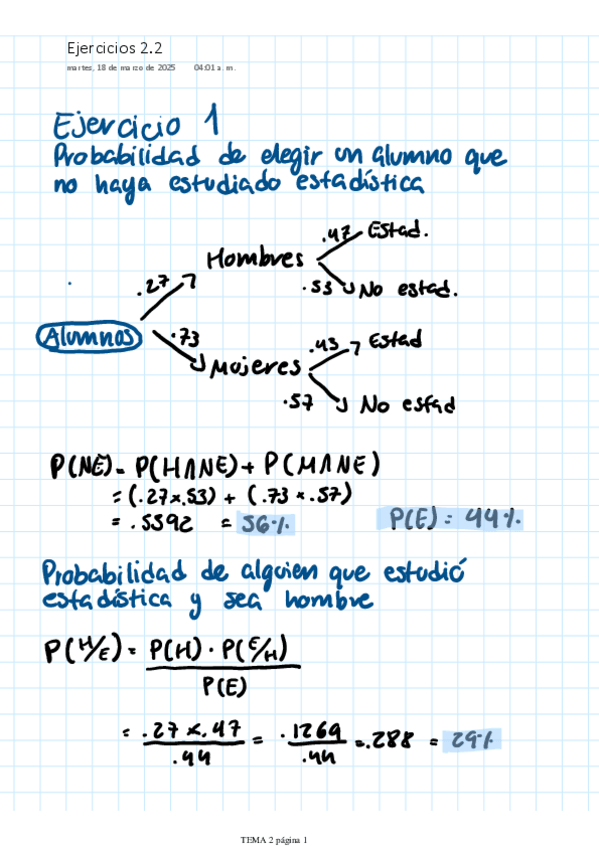 Ejercicios 2.2
martes, 18 de marzo de 2025 04:01 a. m.
Ejercicio 1
Probabilidad de elegir un alumno que
no haya estudiado estadística
.47 Estad.
Hombres
.27
.53 No estad.
Alumnos
.73
.43 Estad
Mujeres
.57 No estad
P(NE) = P(H∩NE) + P(M∩NE)
= (.27×.53) + (.73 × .57)
= .5592 = 56% P(E) = 44%
Probabilidad de alguien que estudió
estadística y sea hombre
P(H/E) = P(H) · P(E/H)
P(E)
= .27 × .47 = .1269 = .288 = 29%
.44 .44
TEMA 2 página 1